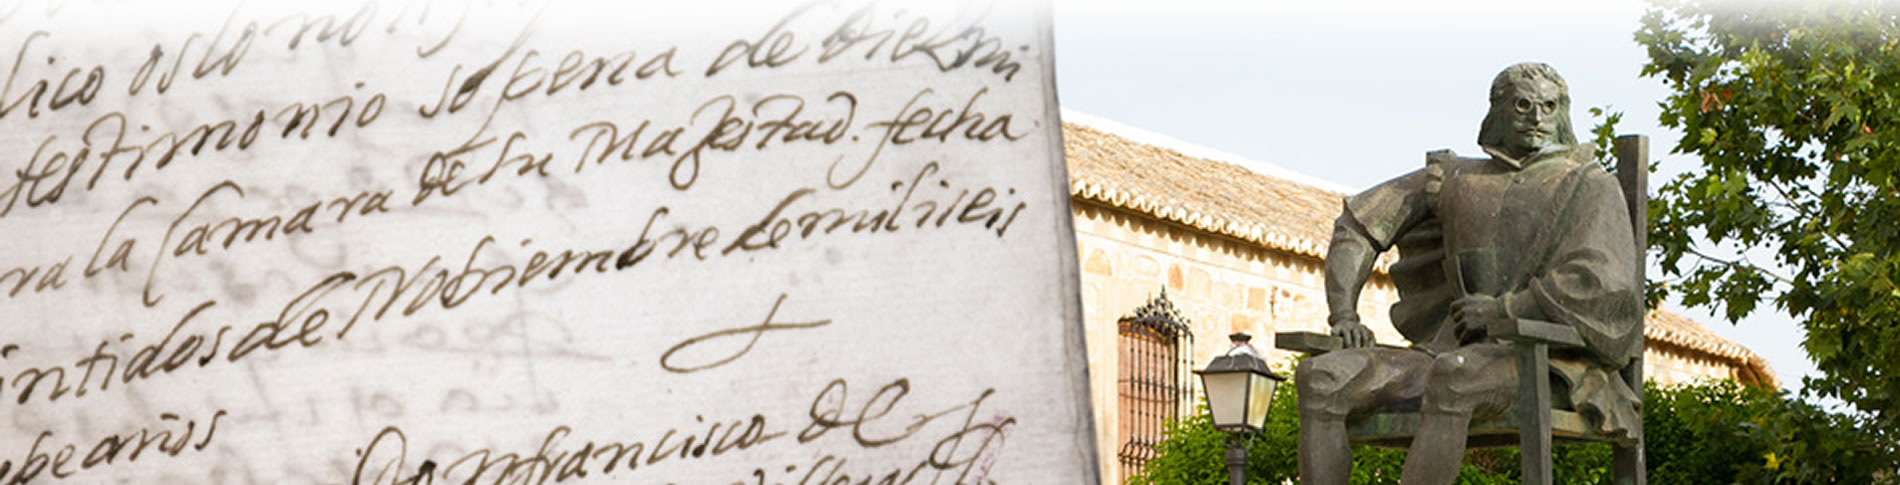 lico os lo no
testimonio so pena de diez mi
ra la Camara de Su Magestad. fecha
intidos de Nobiembre de mil i seis
be años
Don francisco de